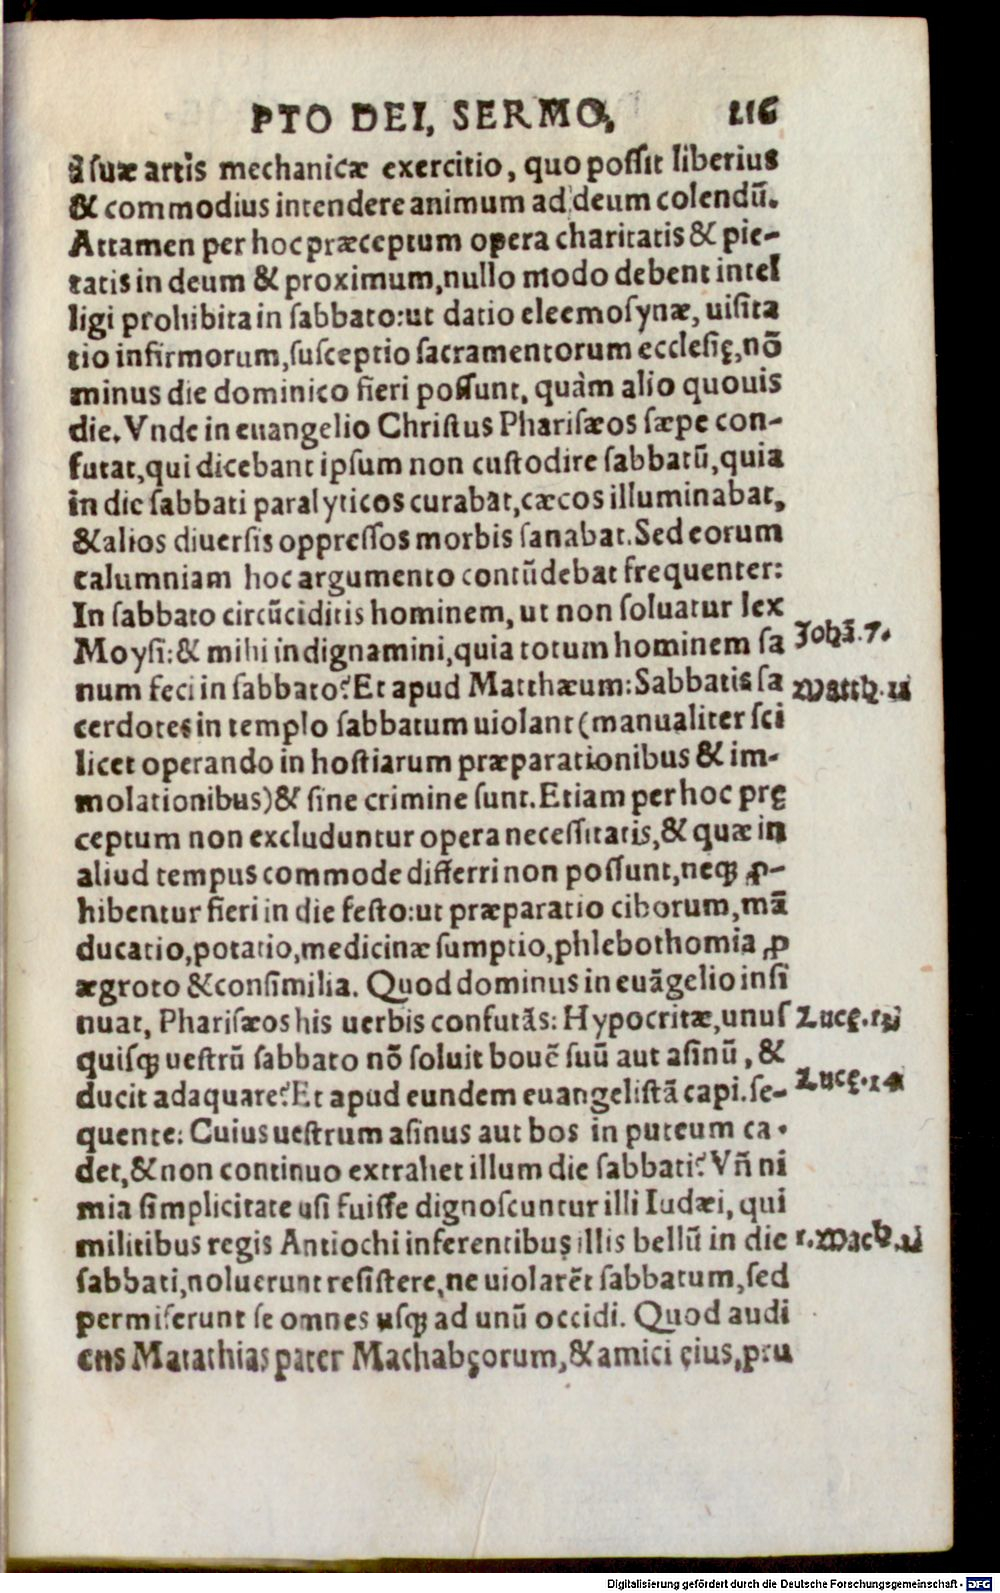 PTO DEI, SERMO, 216
à suæ artis mechanicæ exercitio, quo possit liberius
& commodius intendere animum ad deum colendũ.
Attamen per hoc præceptum opera charitatis & pie-
tatis in deum & proximum, nullo modo debent intel
ligi prohibita in sabbato: ut datio eleemosynæ, uisita
tio infirmorum, susceptio sacramentorum ecclesię, nõ
minus die dominico fieri possunt, quàm alio quouis
die. Vnde in euangelio Christus Pharisæos sæpe con-
futat, qui dicebant ipsum non custodire sabbatũ, quia
in die sabbati paralyticos curabat, cæcos illuminabat,
& alios diuersis oppressos morbis sanabat. Sed eorum
calumniam hoc argumento contũdebat frequenter:
In sabbato circũciditis hominem, ut non soluatur lex
Moysi: & mihi indignamini, quia totum hominem sa
Johã. 7.
num feci in sabbato? Et apud Matthæum: Sabbatis sa
Matth. 12
cerdotes in templo sabbatum uiolant (manualiter sci
licet operando in hostiarum præparationibus & im-
molationibus) & sine crimine sunt. Etiam per hoc prę
ceptum non excluduntur opera necessitatis, & quæ in
aliud tempus commode differri non possunt, neqꝫ ꝓ-
hibentur fieri in die festo: ut præparatio ciborum, mã
ducatio, potatio, medicinæ sumptio, phlebothomia ꝓ
ægroto & consimilia. Quod dominus in euãgelio insi
nuat, Pharisæos his uerbis confutãs: Hypocritæ, unus
Lucę. 13
quisqꝫ uestrũ sabbato nõ soluit bouẽ suũ aut asinũ, &
ducit adaquare? Et apud eundem euangelistã capi. se-
Lucę. 14
quente: Cuius uestrum asinus aut bos in puteum ca-
det, & non continuo extrahet illum die sabbati? Vñ ni
mia simplicitate usi fuisse dignoscuntur illi Iudæi, qui
militibus regis Antiochi inferentibus illis bellũ in die
1. Mach. 2
sabbati, noluerunt resistere, ne uiolarẽt sabbatum, sed
permiserunt se omnes usqꝫ ad unũ occidi. Quod audi
ens Matathias pater Machabęorum, & amici eius, pru
Digitalisierung gefördert durch die Deutsche Forschungsgemeinschaft - DFG